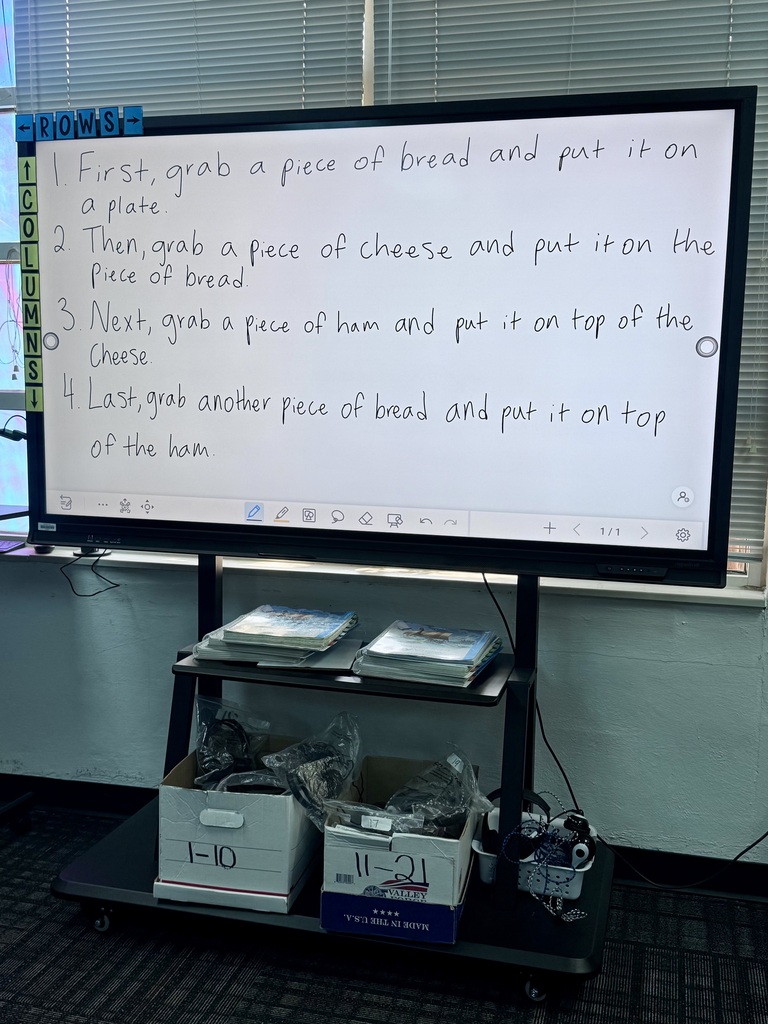 ← ROWS →
↑ COLUMNS ↓
1. First, grab a piece of bread and put it on
a plate.
2. Then, grab a piece of cheese and put it on the
piece of bread.
3. Next, grab a piece of ham and put it on top of the
cheese.
4. Last, grab another piece of bread and put it on top
of the ham.
1/1
1-10
17
11-21
VALLEY
MADE IN THE U.S.A.